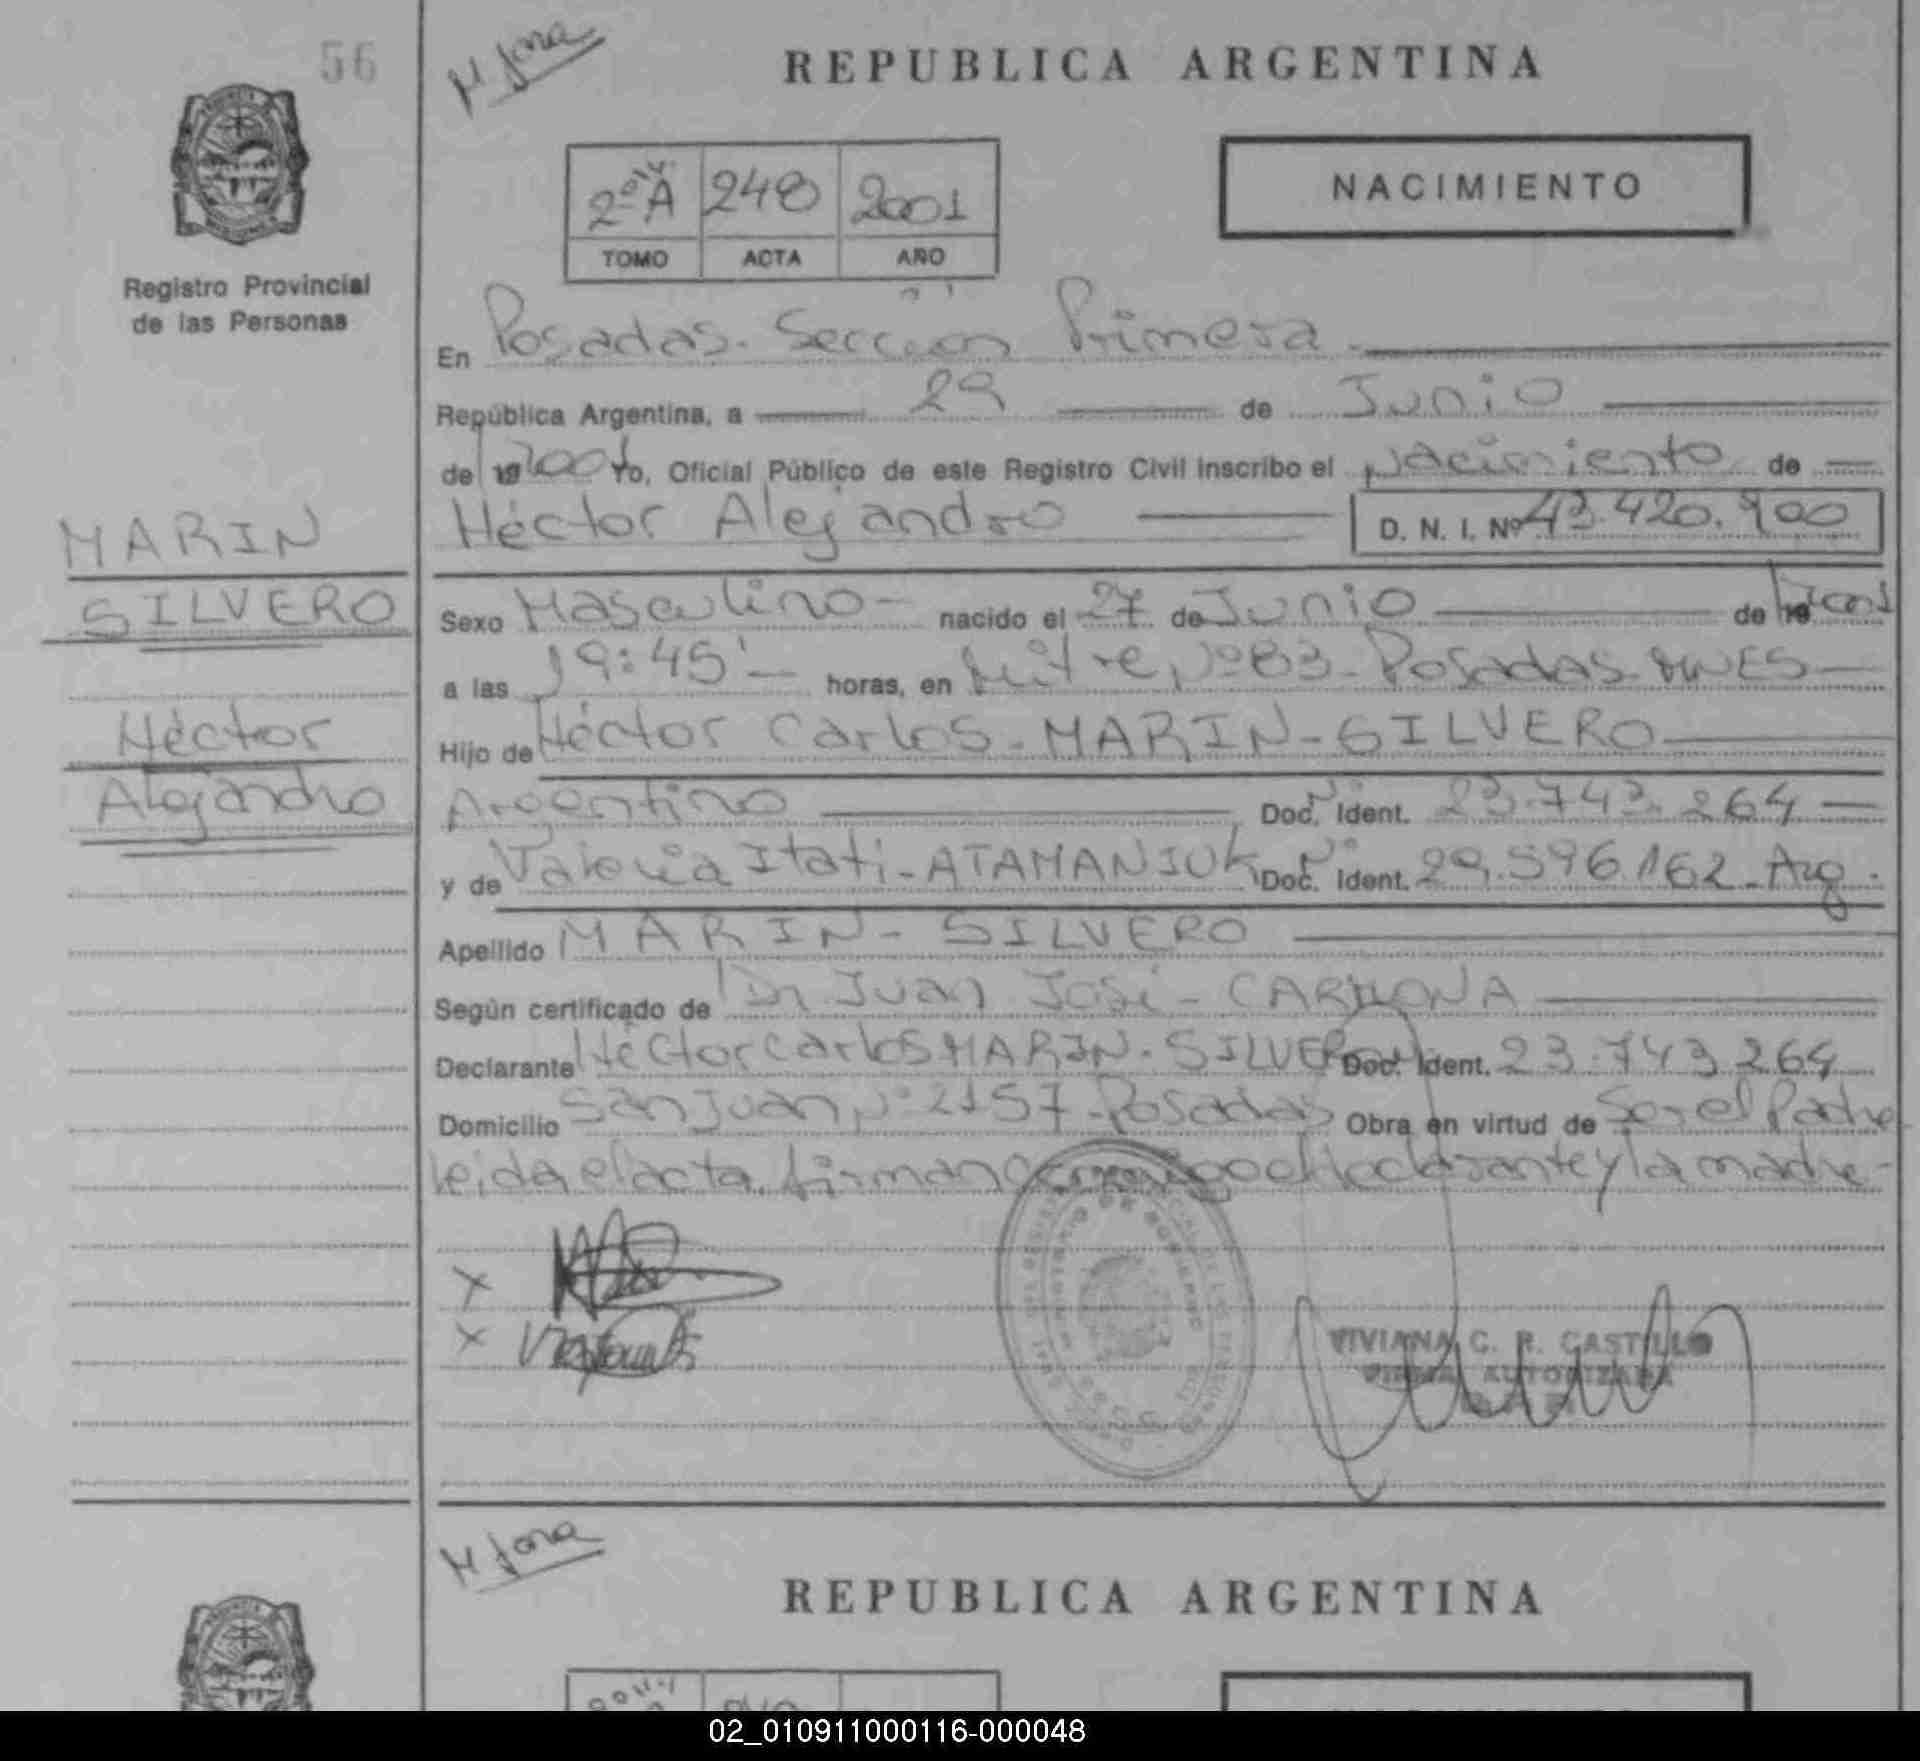 56
M Jona
REPUBLICA ARGENTINA
2º A 248 2001
TOMO ACTA AÑO
NACIMIENTO
Registro Provincial
de las Personas
En Posadas - Sección Primera
República Argentina, a 29 de Junio
de 19 2001 Yo, Oficial Público de este Registro Civil inscribo el Nacimiento de
Héctor Alejandro D. N. I. Nº 43.420.900
MARIN
SILVERO
Héctor
Alejandro
Sexo Masculino - nacido el 27 de Junio de 19 2001
a las 19:45' horas, en Mitre Nº 83 - Posadas MNES
Hijo de Héctor Carlos - MARIN - SILVERO
Argentino Doc. Nº Ident. 23.743.264
y de Valeria Itati - ATAMANIUK Doc. Nº Ident. 29.596.162 - Arg.
Apellido MARIN - SILVERO
Según certificado de Dr Juan José - CARMONA
Declarante Héctor Carlos MARIN - SILVERO Doc. Ident. 23.743.264
Domicilio San Juan Nº 2157 - Posadas Obra en virtud de Ser el Padre
leida el acta, firman conmigo el declarante y la madre -
X
X
VIVIANA C. R. CASTILLO
FIRMA AUTORIZADA
M Jona
REPUBLICA ARGENTINA
02_010911000116-000048